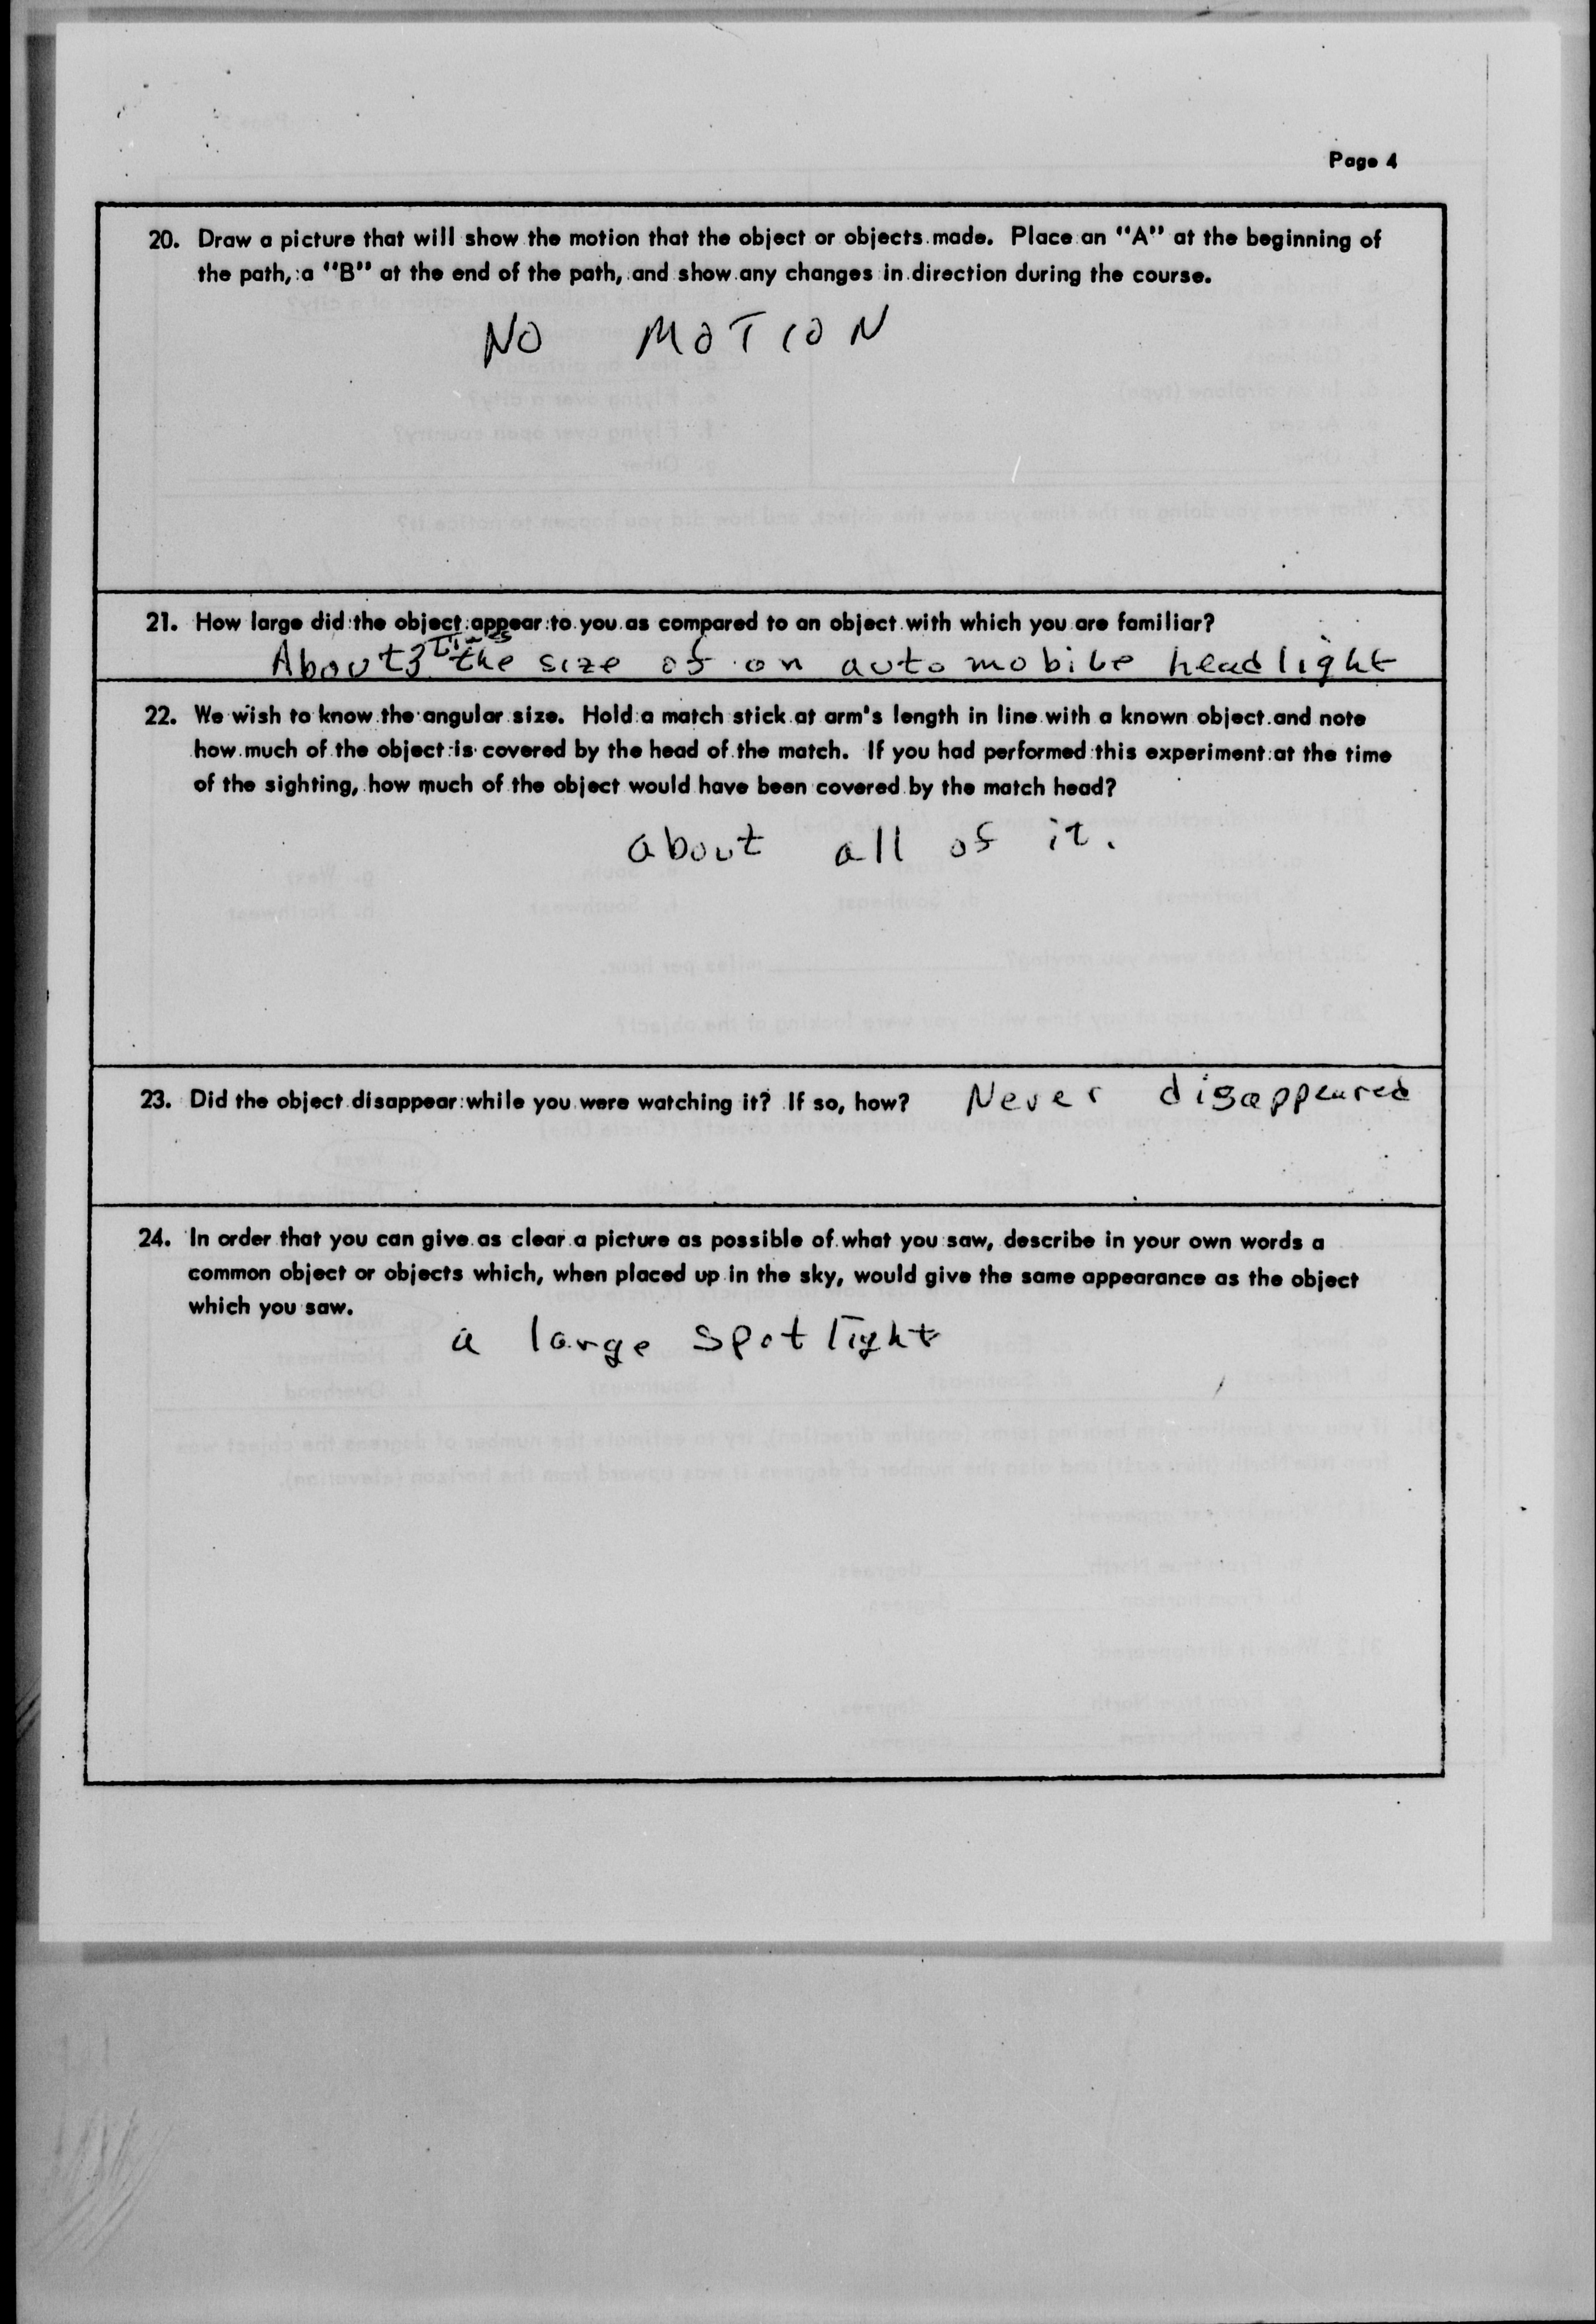 Page 4
20. Draw a picture that will show the motion that the object or objects made. Place an "A" at the beginning of
the path, a "B" at the end of the path, and show any changes in direction during the course.
NO MOTION
21. How large did the object appear to you as compared to an object with which you are familiar?
About 3 times the size of on automobile headlight
22. We wish to know the angular size. Hold a match stick at arm's length in line with a known object and note
how much of the object is covered by the head of the match. If you had performed this experiment at the time
of the sighting, how much of the object would have been covered by the match head?
about all of it.
23. Did the object disappear while you were watching it? If so, how? Never disappeared
24. In order that you can give as clear a picture as possible of what you saw, describe in your own words a
common object or objects which, when placed up in the sky, would give the same appearance as the object
which you saw.
a large spot light